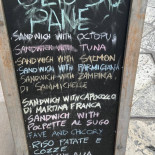 PANE
SANDWICH WITH OCTOPU
SANDWICH WITH TUNA
SANDWICH WITH SALMON
SANDWICH WITH PARMIGIANA
SANDWICH WITH ZAMPINA
DI SAMMICHELE
SANDWICH WITH CAPOCOLLO
DI MARTINA FRANCA
SANDWICH WITH
POLPETTE AL SUGO
FAVE AND CHICORY
RISO PATATE E
COZZE